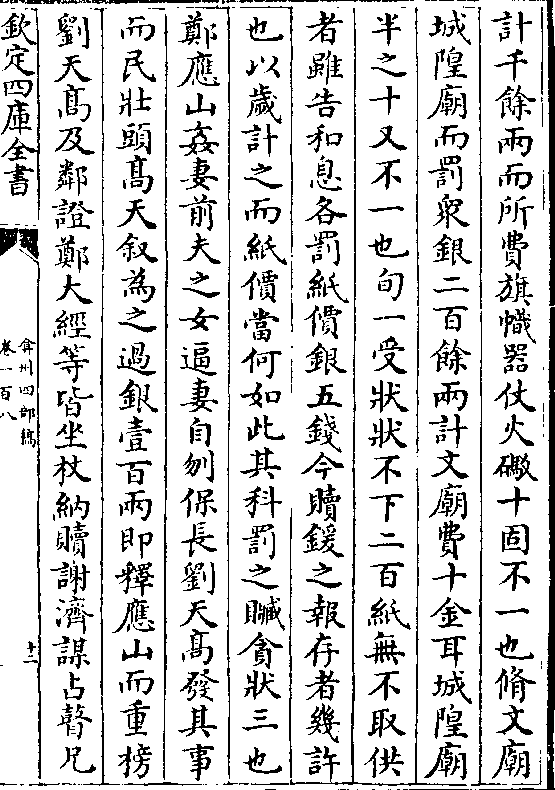 計千餘兩而所費旗幟器仗火礮十固不一也脩文廟
城隍廟而罰衆銀二百餘兩計文廟費十金耳城隍廟
半之十又不一也旬一受狀狀不下二百紙無不取供
者雖告和息各罰紙價銀五錢今贖鍰之報存者幾許
也以歲計之而紙價當何如此其科罰之贓貪狀三也
鄭應山姦妻前夫之女逼妻自刎保長劉天髙發其事
而民壯頭髙天叙為之過銀壹百兩即釋應山而重榜
劉天髙及鄰證鄭大經等皆坐杖納贖謝濟謀占瞽兄
欽定四庫全書
弇州四部稿
卷一百八
十二